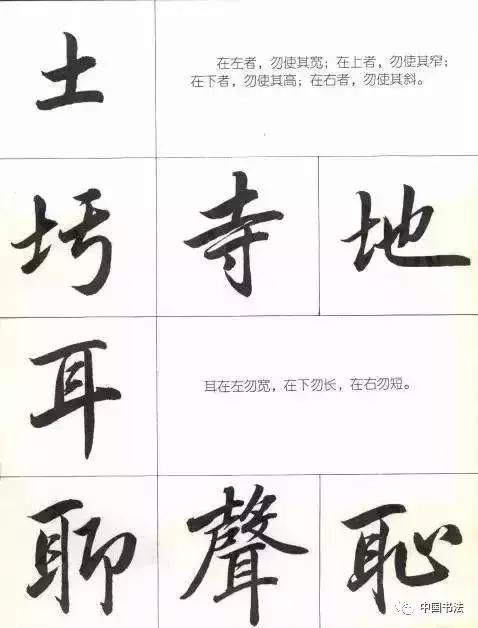 土
在左者，勿使其宽；在上者，勿使其窄；
在下者，勿使其高；在右者，勿使其斜。
圬 寺 地
耳
耳在左勿宽，在下勿长，在右勿短。
聊 聲 恥
中国书法